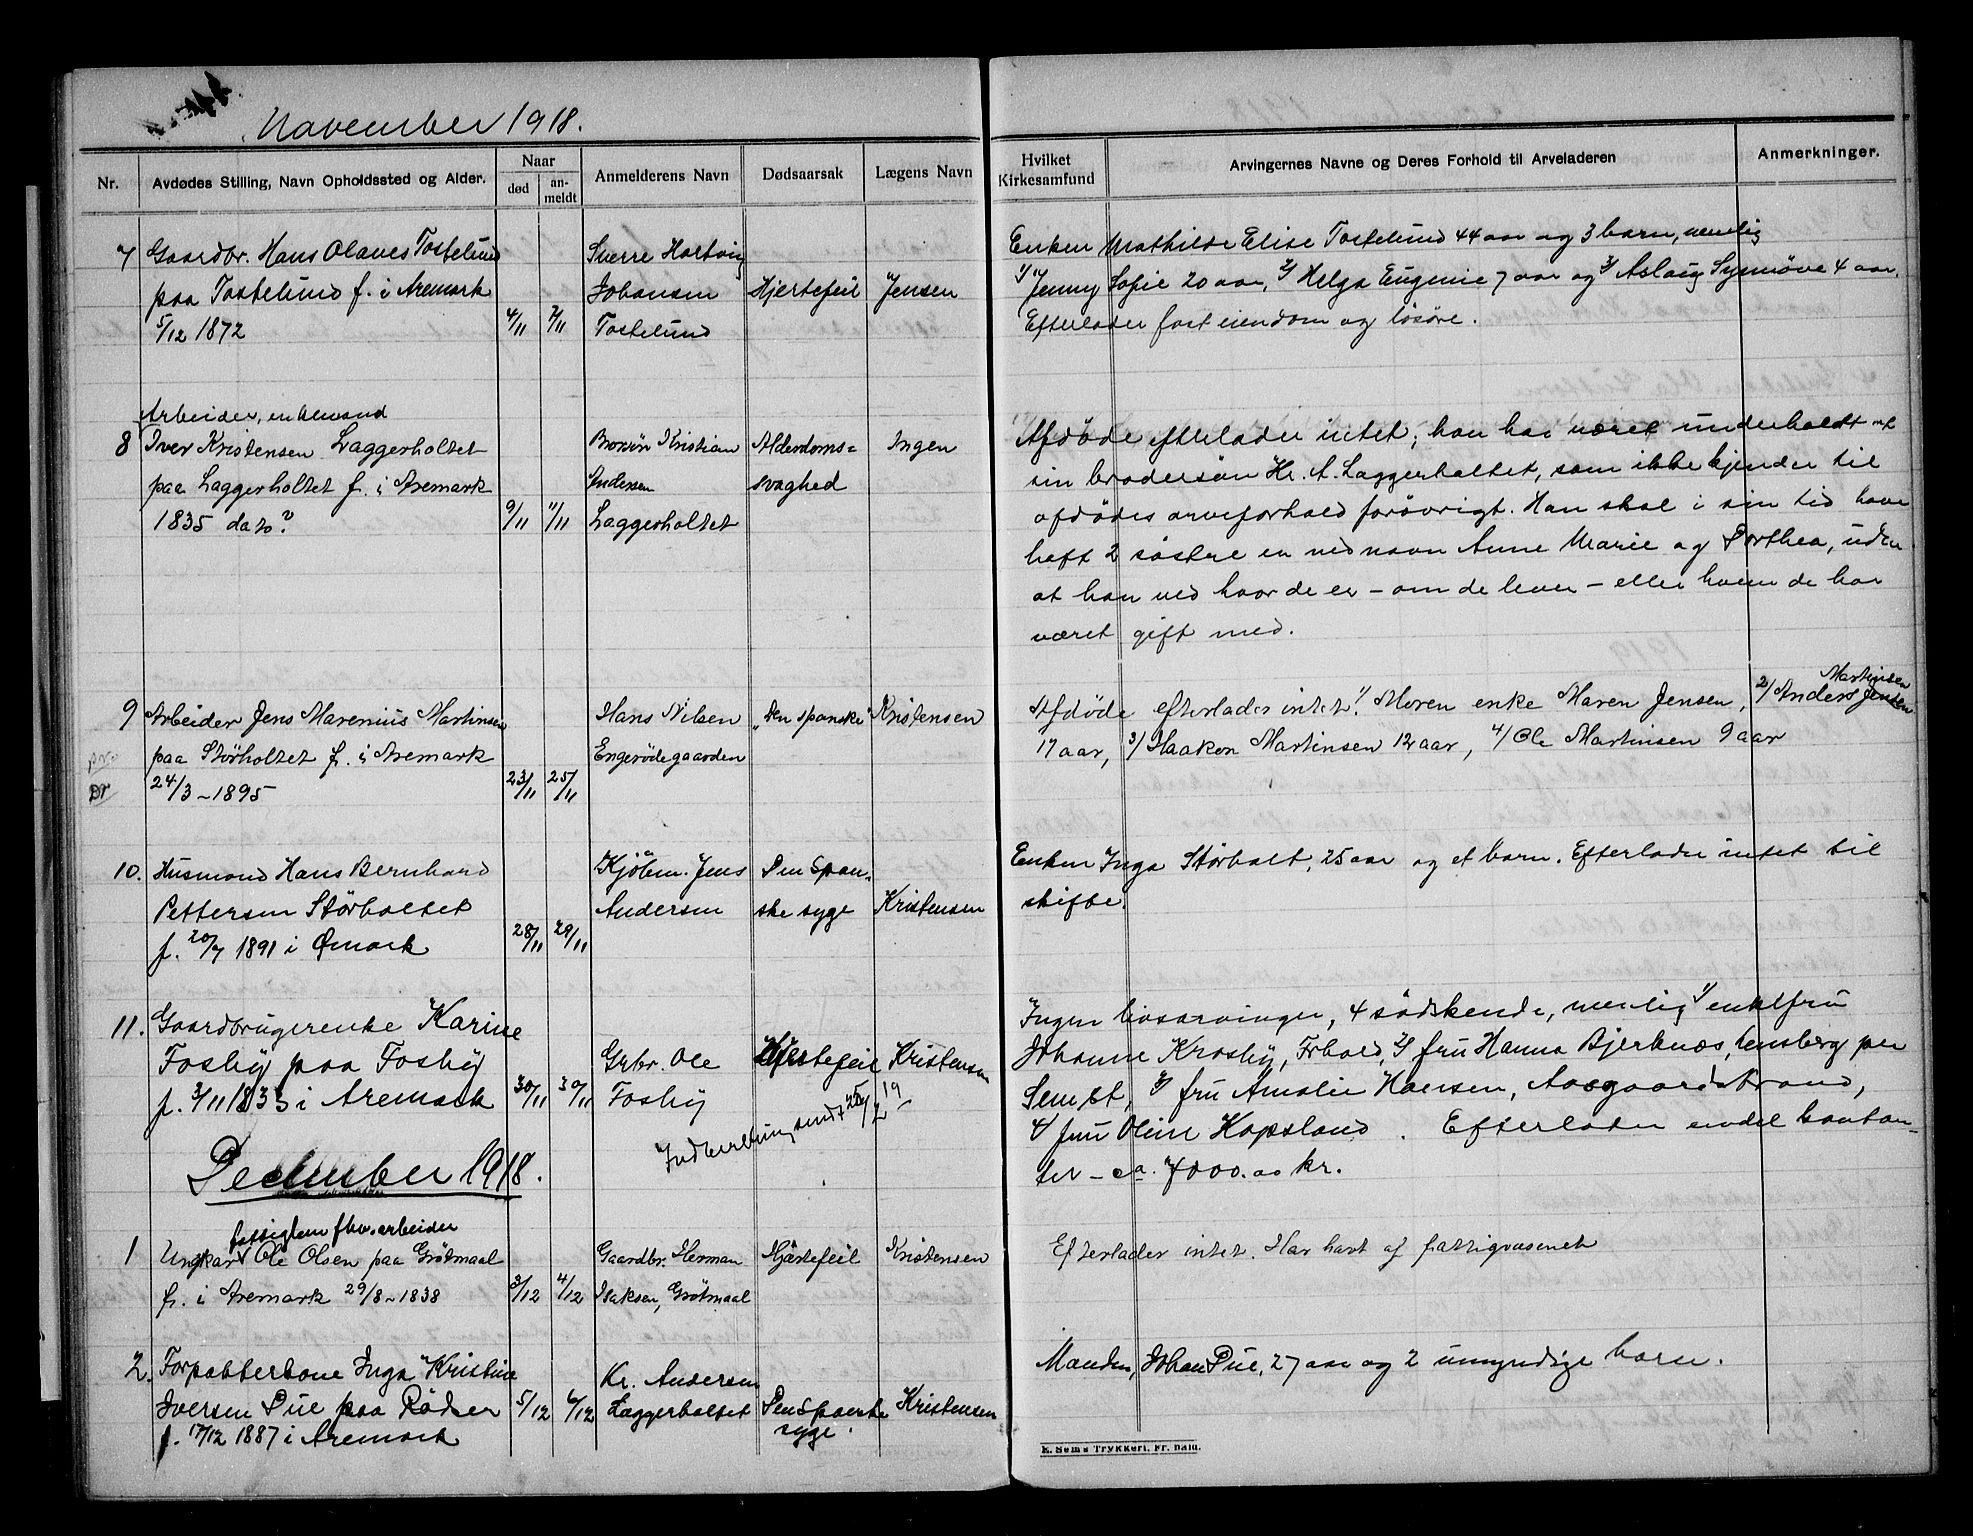 November 1918.
Nr.
Avdødes Stilling, Navn Opholdssted og Alder.
Naar
død
an-
meldt
Anmelderens Navn
Dødsaarsak
Lægens Navn
Hvilket
Kirkesamfund
Arvingernes Navne og Deres Forhold til Arveladeren
Anmerkninger.
7
Gaardbr. Hans Olaves Tostelund
paa Tostelund f. i Aremark
5/12 1872
4/11
7/11
Sverre Hartvig
Johansen
Tostelund
Hjertefeil
Jensen
Enken Mathilde Elise Tostelund 44 aar og 3 barn, nemlig
1/ Jenny Sofie 20 aar, 2/ Helga Eugenie 7 aar og 3/ Aslaug Synnøve 4 aar.
Efterlader fast eiendom og løsøre.
Arbeider, enkemand
8
Iver Kristensen Laggerholtet
paa Laggerholtet f. i Aremark
1835 dato?
9/11
11/11
Brorsøn Kristian
Andersen
Laggerholtet
Alderdoms=
svaghed
Ingen
Afdøde efterlader intet; han har været underholdt af
sin brodersøn Kr. A. Laggerholtet, som ikke kjender til
afdødes arveforhold forøvrigt. Han skal i sin tid have
haft 2 søstre en ved navn Anne Marie og Dorthea, uden
at han ved hvor de er – om de lever – eller hvem de har
været gift med.
9
Arbeider Jens Marenius Martinsen
paa Størholtet f. i Aremark
24/3 – 1895
23/11
25/11
Hans Nilsen
Engerødegaarden
"Den spanske"
Kristensen
Afdøde efterlader intet. 1/ Moren enke Maren Jensen, 2/ Anders Jensen
Martinsen
17 aar, 3/ Haakon Martinsen 12 aar, 4/ Ole Martinsen 9 aar
10.
Husmand Hans Bernhard
Pettersen Størholtet
f. 20/7 1891 i Ømark
28/11
29/11
Kjøbm. Jens
Andersen
Den Span-
ske syge
Kristensen
Enken Inga Størholt, 25 aar og et barn. Efterlader intet til
skifte.
11.
Gaardbrugerenke Karine
Fosby paa Fosby
f. 3/11 1833 i Aremark
30/11
30/11
Grbr. Ole
Fosby
Hjertefeil
Kristensen
Indberetning sendt 25/2 19
Ingen livsarvinger, 4 sødskende, nemlig 1/ enkefru
Johanne Krosby, Frhald, 2/ fru Hanna Bjerknæs, Tønsberg per
Sem st, 3/ fru Amalie Hansen, Aasgaardstrand,
4/ fru Oline Kapsland. Efterlader endel kontan-
ter – ca. 7000.00 kr.
December 1918.
fattiglem fhv. arbeider
1
Ungkar Ole Olsen paa Grøtmaal
f. i Aremark 29/8 – 1838
3/12
4/12
Gaardbr. Herman
Isaksen, Grøtmaal
Hjærtefeil
Kristensen
Efterlader intet. Har havt af fattigvæsenet
2.
Forpakterkone Inga Kristine
Iversen Bue paa Rødser
f. 17/12 1887 i Aremark
5/12
6/12
Kr. Andersen
Laggerholtet
Den Spanske
syge.
Kristensen
Manden, Johan Bue, 27 aar og 2 umyndige barn.
E. Sem's Trykkeri, Fr.hald.